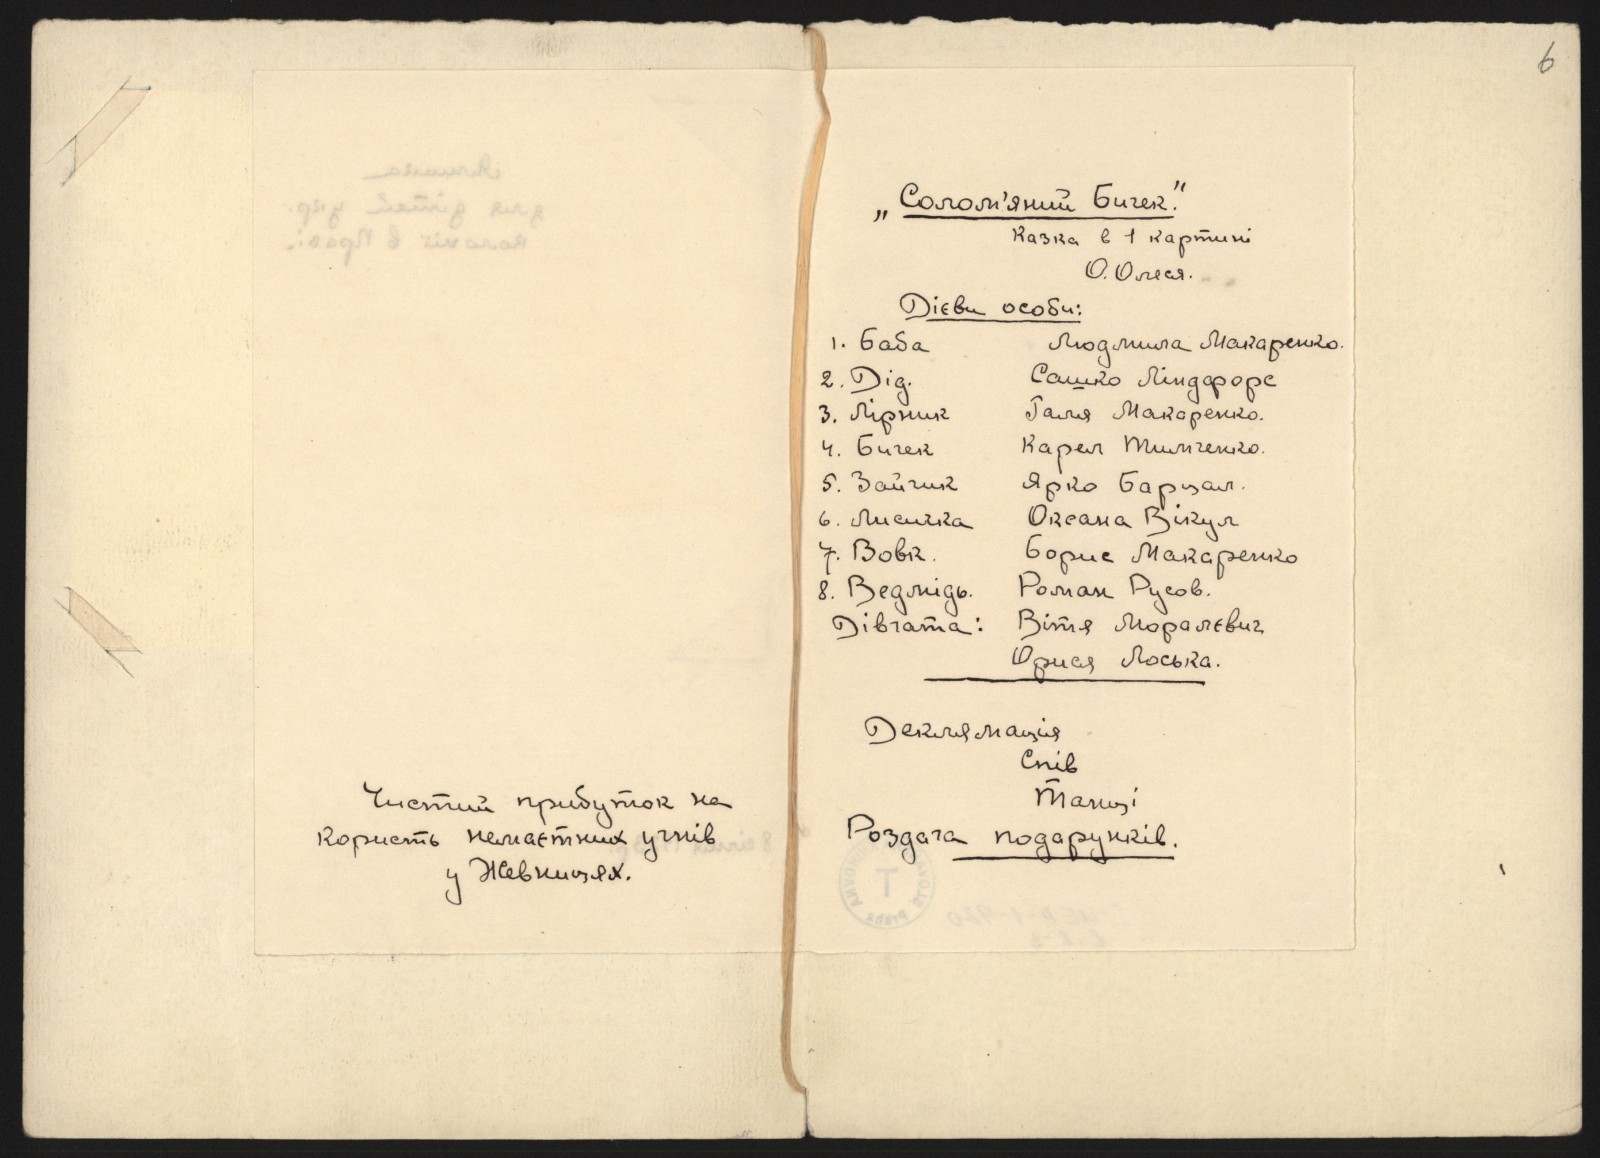 Чистий прибуток на
користь немаєтних учнів
у Жевницях.
6
„Солом'яний Бичек."
Казка в 1 картині
О. Олеся.
Дієви особи:
1. Баба Людмила Макаренко.
2. Дід. Сашко Ліндфорс
3. Лірник Галя Макаренко.
4. Бичек Карел Тимченко.
5. Зайчик Ярко Барцал.
6. Лисичка Оксана Вікул
7. Вовк. Борис Макаренко
8. Ведмідь. Роман Русов.
Дівчата: Вітя Моралєвич
Орися Лоська.
Деклямація
Спів
Танці
Роздача подарунків.